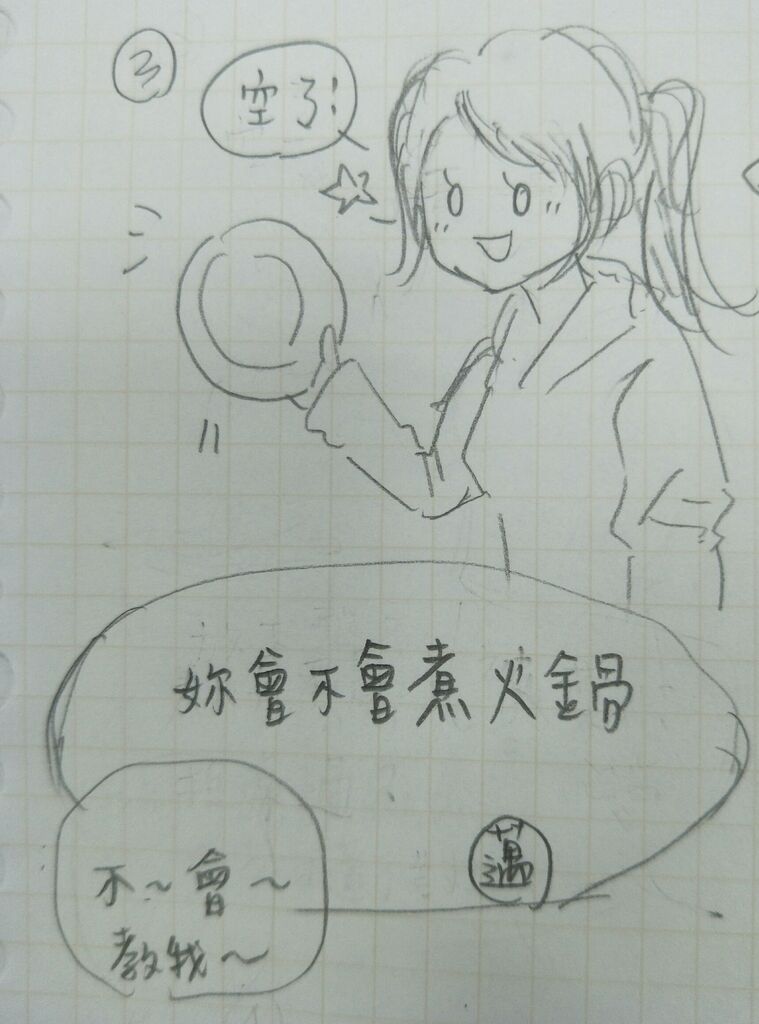 ③
空了!
妳會不會煮火鍋
邁
不~會~
教我~